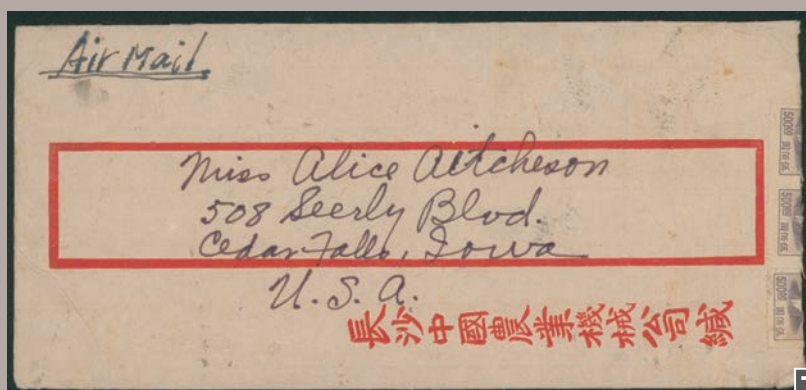 Air Mail
Miss Alice Aitcheson
508 Seerly Blvd.
Cedar Falls, Iowa
U. S. A.
長沙中國農業機械公司緘